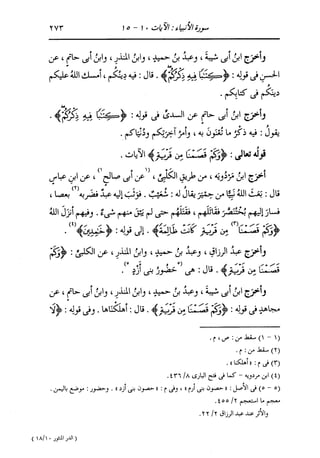 سورة الأنبياء : الآيات ١٠ - ١٥
٢٧٣
وأخرج ابنُ أبى شيبةَ ، وعبدُ بنُ حميدٍ ، وابنُ المنذرِ ، وابنُ أبى حاتمٍ ، عن
الحسنِ فى قولِه : ﴿ كِتَٰبًا فِيهِ ذِكْرُكُمْ ﴾ . قال : فيه دينُكم ، أمسك اللهُ عليكم
دينَكم فى كتابِكم .
وأخرج ابنُ أبى حاتمٍ عن السدىِّ فى قولِه : ﴿ كِتَٰبًا فِيهِ ذِكْرُكُمْ ﴾ .
يقولُ : فيه ذكرُ ما تُعنون به ، وأمرُ آخرتِكم ودنياكم .
قولُه تعالى : ﴿ وَكَمْ قَصَمْنَا مِن قَرْيَةٍ ﴾ الآيات .
أخرج ابنُ مَرْدُويَه ، من طريقِ الكلبىِّ ، (١عن أبى صالحٍ١) ، عن ابنِ عباسٍ
قال : بعَث اللهُ نبيًّا من حِمْيَرَ يقالُ له : شُعَيْبٌ . فوثَب إليه عبدٌ فضرَبه (٢) بعصا ،
فسار إليهم بُخْتُنَصَّرَ فقاتَلهم ، فقتَلهم حتى لم يَبقَ منهم شىءٌ . وفيهم أنزَل اللهُ
﴿ وَكَمْ قَصَمْنَا (٣) مِن قَرْيَةٍ كَانَتْ ظَالِمَةً ﴾ . إلى قولِه : ﴿ خَٰمِدِينَ ﴾ (٤) .
وأخرج عبدُ الرزاقِ ، وعبدُ بنُ حميدٍ ، وابنُ المنذرِ ، عن الكلبىِّ : ﴿ وَكَمْ
قَصَمْنَا مِن قَرْيَةٍ ﴾ . قال : هى (٥حَضُورُ بنى أزدٍ٥) .
وأخرج ابنُ أبى شيبةَ ، وعبدُ بنُ حميدٍ ، وابنُ المنذرِ ، وابنُ أبى حاتمٍ ، عن
مجاهدٍ فى قولِه : ﴿ وَكَمْ قَصَمْنَا مِن قَرْيَةٍ ﴾ . قال : أهلَكناها . وفى قولِه : ﴿ لَا
(١ - ١) سقط من : ص ، م .
(٢) سقط من : م .
(٣) فى م : « أهلكنا » .
(٤) ابن مردويه - كما فى فتح البارى ٤٣٦/٨ .
(٥ - ٥) فى الأصل : « حصون بنى أرم » ، وفى م : « حصون بنى أزد » . وحضور : موضع باليمن .
معجم ما استعجم ٤٥٥/٢ .
والأثر عند عبد الرزاق ٢٢/٢ .
( الدر المنثور ١٨/١٠ )